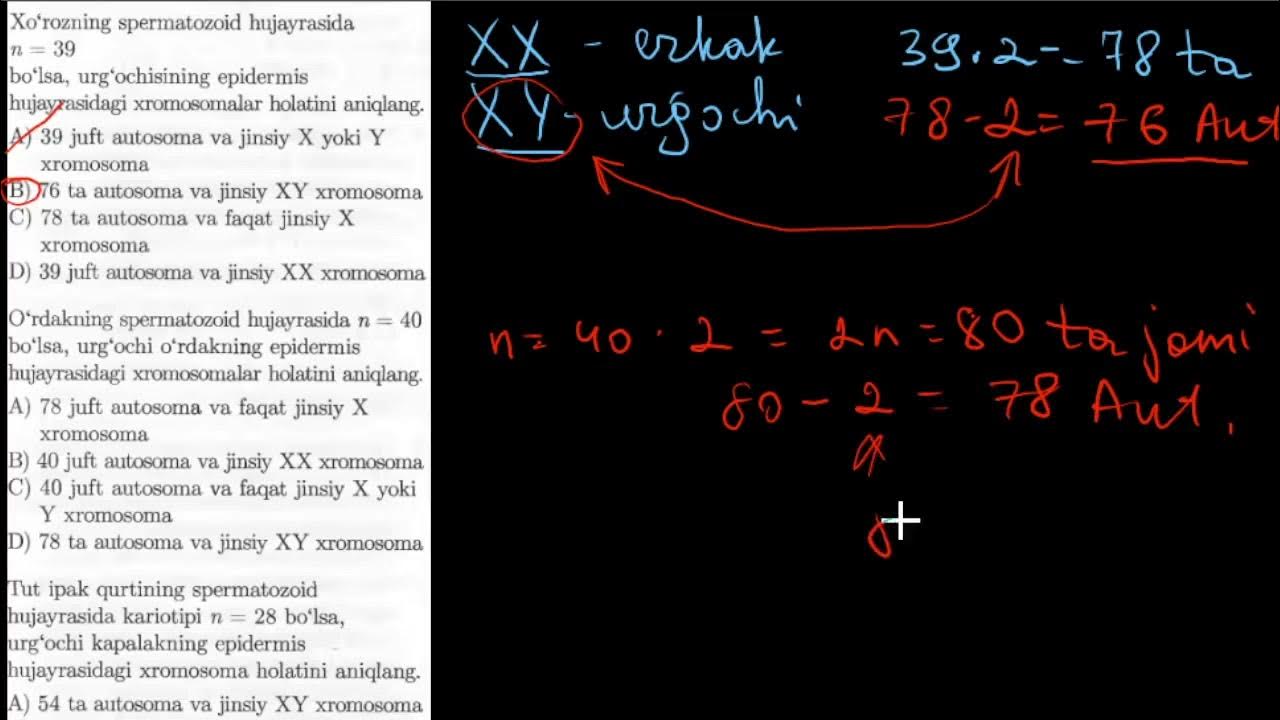 Xo‘rozning spermatozoid hujayrasida
n = 39
bo‘lsa, urg‘ochisining epidermis
hujayrasidagi xromosomalar holatini aniqlang.
A) 39 juft autosoma va jinsiy X yoki Y
xromosoma
B) 76 ta autosoma va jinsiy XY xromosoma
C) 78 ta autosoma va faqat jinsiy X
xromosoma
D) 39 juft autosoma va jinsiy XX xromosoma
O‘rdakning spermatozoid hujayrasida n = 40
bo‘lsa, urg‘ochi o‘rdakning epidermis
hujayrasidagi xromosomalar holatini aniqlang.
A) 78 juft autosoma va faqat jinsiy X
xromosoma
B) 40 juft autosoma va jinsiy XX xromosoma
C) 40 juft autosoma va faqat jinsiy X yoki
Y xromosoma
D) 78 ta autosoma va jinsiy XY xromosoma
Tut ipak qurtining spermatozoid
hujayrasida kariotipi n = 28 bo‘lsa,
urg‘ochi kapalakning epidermis
hujayrasidagi xromosoma holatini aniqlang.
A) 54 ta autosoma va jinsiy XY xromosoma
XX - erkak
XY - urgochi
39 . 2 = 78 ta
78 - 2 = 76 Aut
n = 40 . 2 = 2n = 80 ta jami
80 - 2 = 78 Aut.